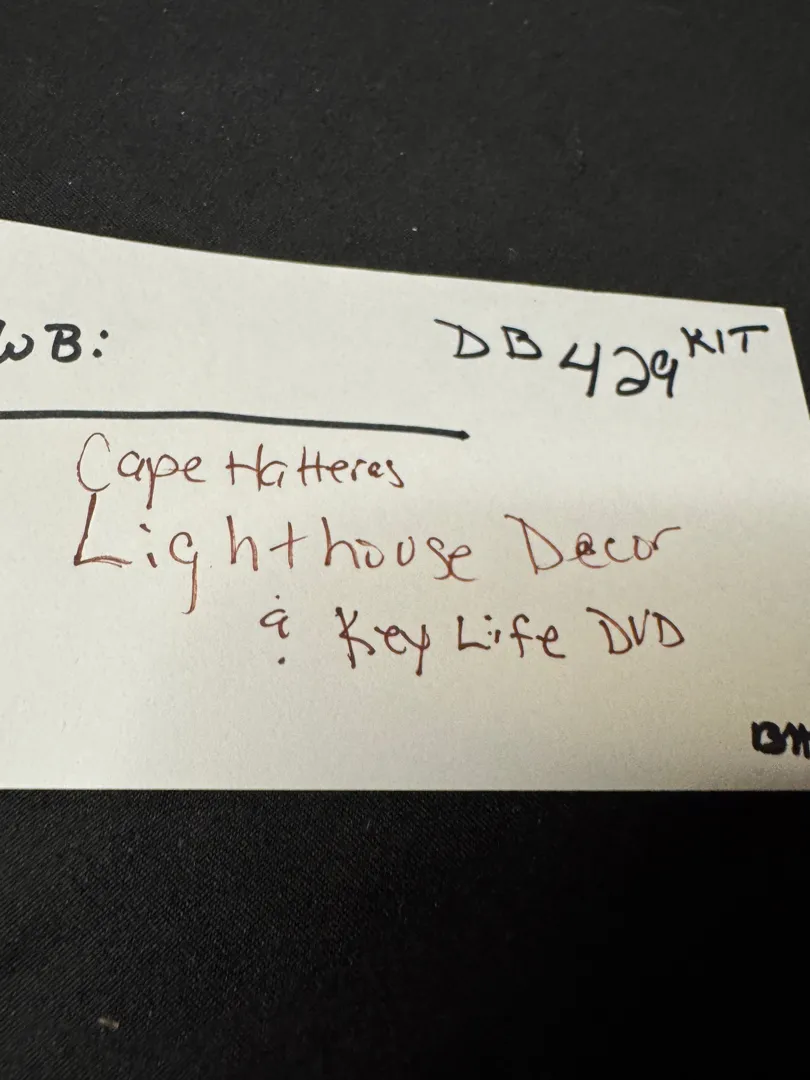 WB: DB 429 KIT
Cape Hatteras
Lighthouse Decor
& Key Life DVD